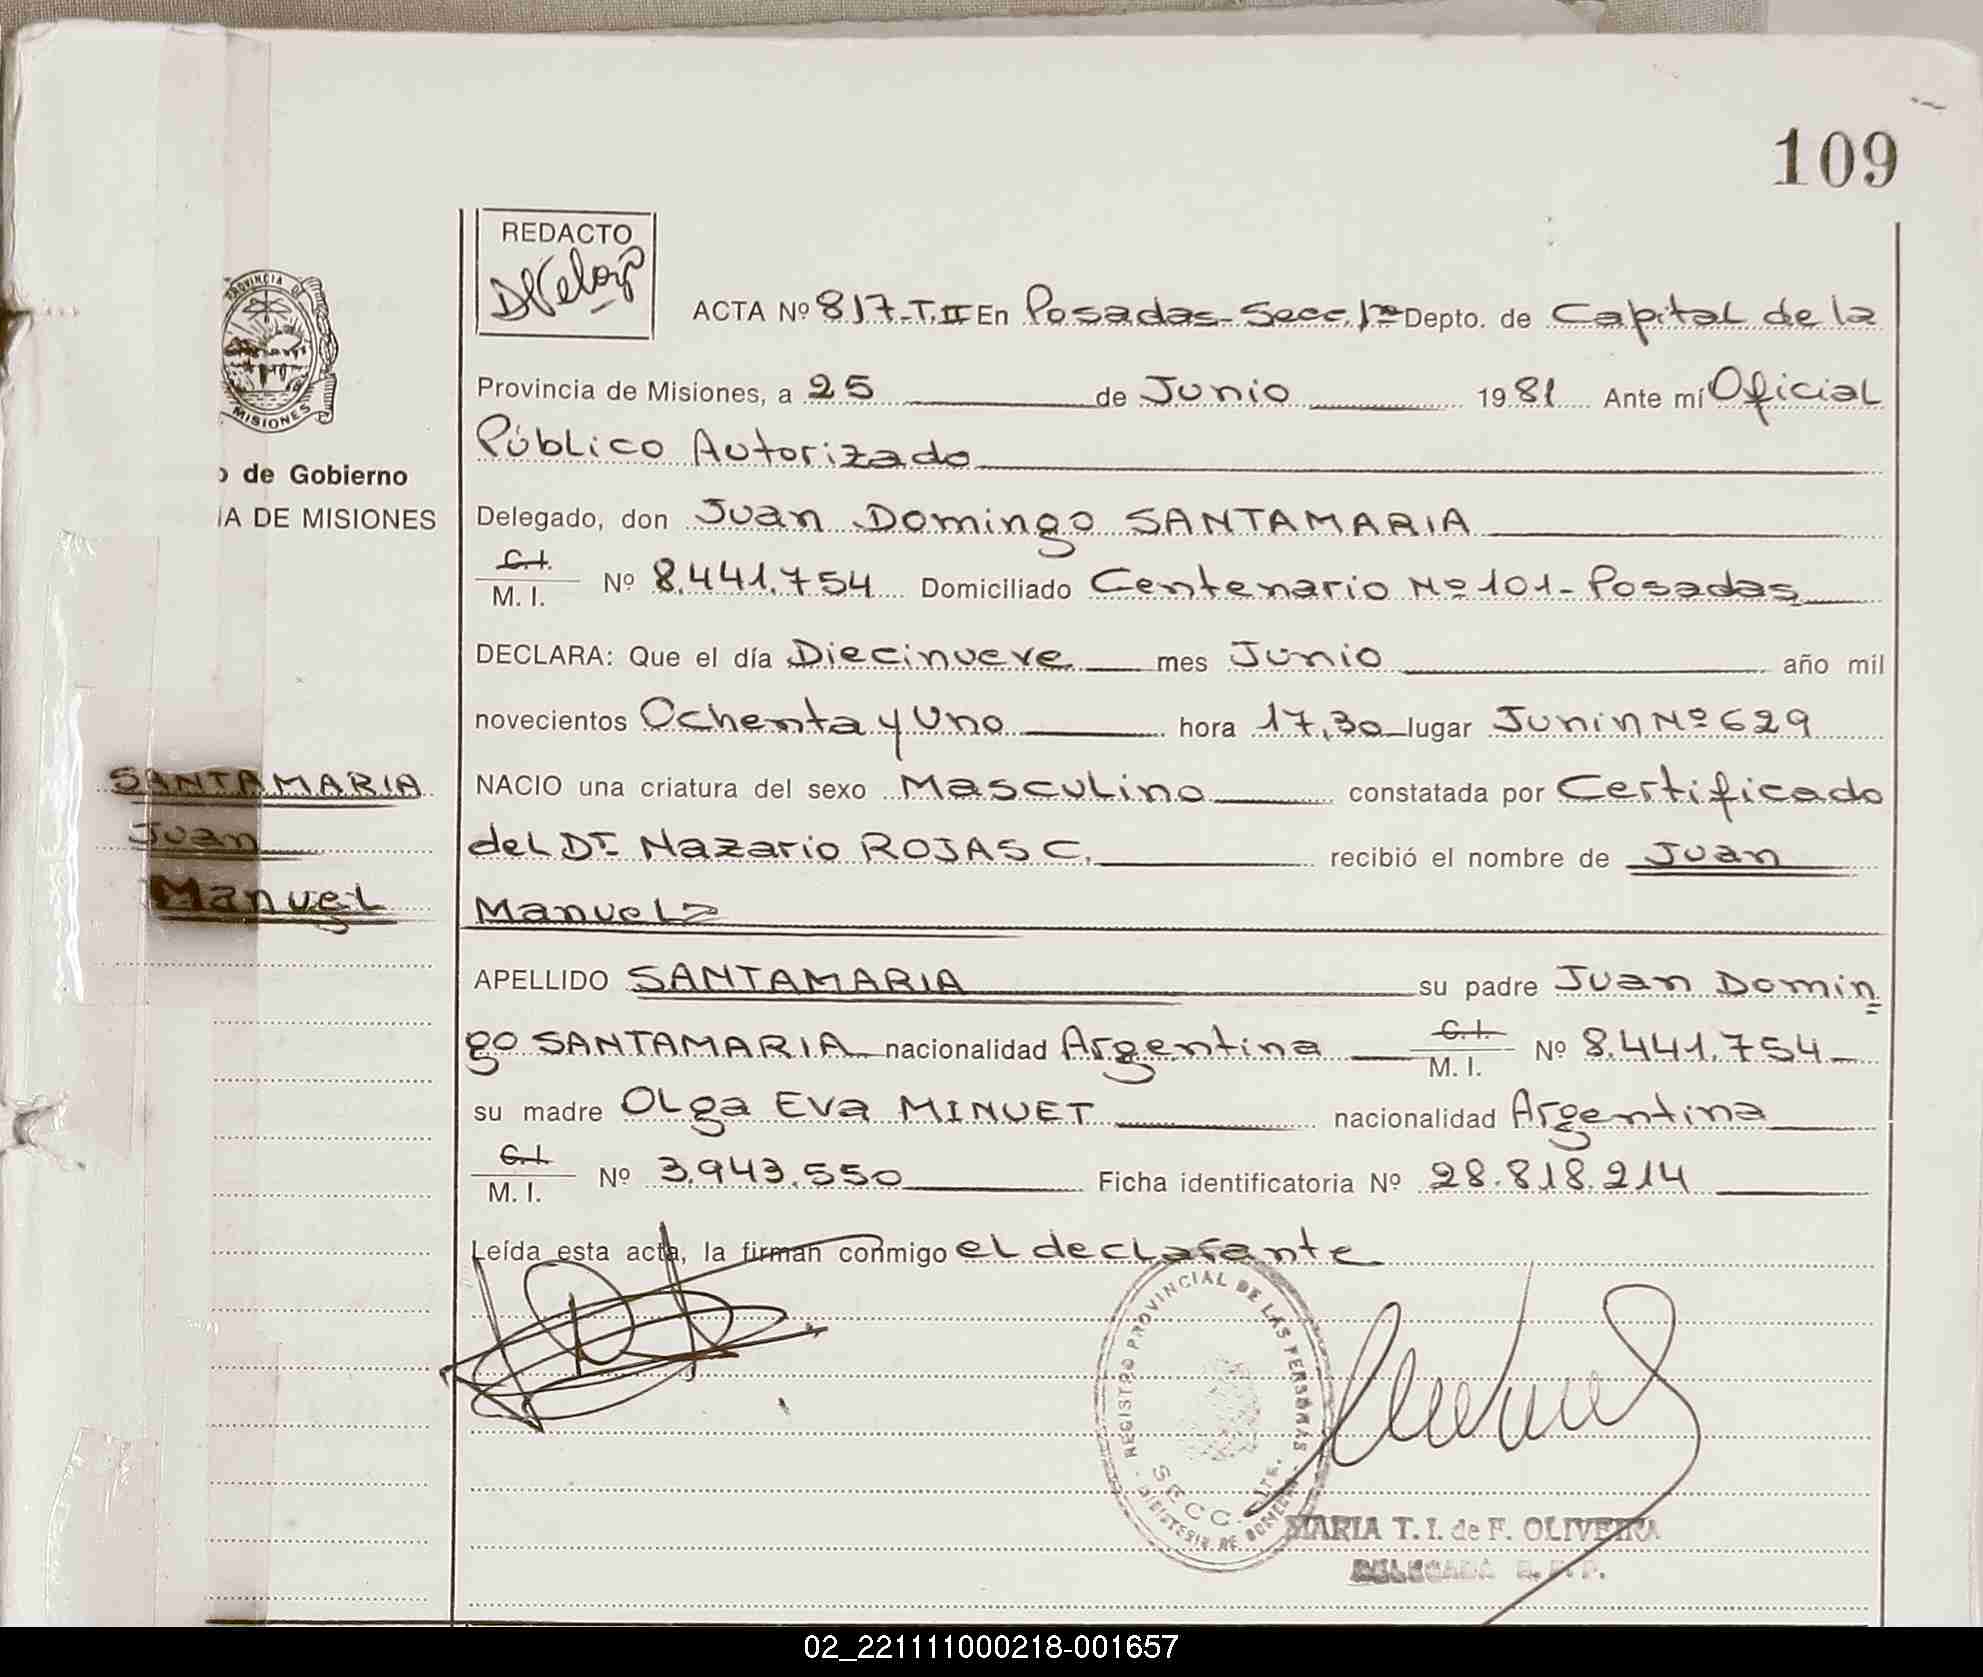 109
REDACTO
PROVINCIA DE
MISIONES
ACTA Nº 817-T.II En Posadas-Secc.1ra Depto. de Capital de la
Provincia de Misiones, a 25 de Junio 1981 Ante mí Oficial
Público Autorizado
o de Gobierno
IA DE MISIONES
Delegado, don Juan Domingo SANTAMARIA
C.I.
M. I. Nº 8.441.754 Domiciliado Centenario Nº 101-Posadas
DECLARA: Que el día Diecinueve mes Junio año mil
novecientos Ochenta y Uno hora 17,30 lugar Junin Nº 629
SANTAMARIA
Juan
Manuel
NACIO una criatura del sexo Masculino constatada por Certificado
del Dr. Nazario ROJAS C. recibió el nombre de Juan
Manuel
APELLIDO SANTAMARIA su padre Juan Domin
go SANTAMARIA nacionalidad Argentina C.I.
M. I. Nº 8.441.754
su madre Olga Eva MINUET nacionalidad Argentina
C.I.
M. I. Nº 3.943.550 Ficha identificatoria Nº 28.818.214
Leída esta acta, la firman conmigo el declarante
REGISTRO PROVINCIAL DE LAS PERSONAS
SECC.
MARIA T. I. de F. OLIVEIRA
DELEGADA R. P. P.
02_221111000218-001657